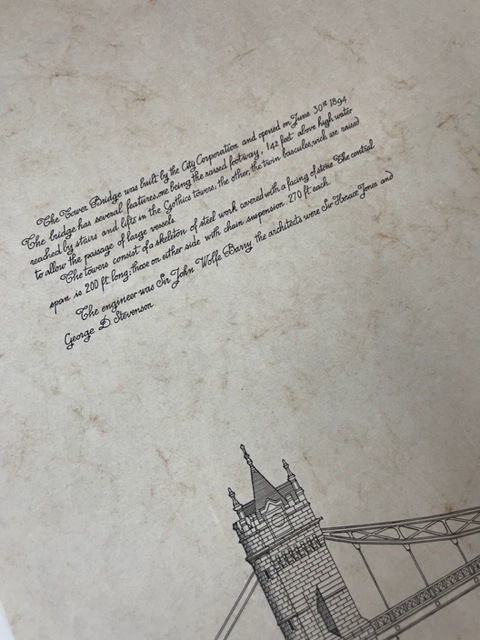 The Tower Bridge was built by the City Corporation and opened on June 30st 1894
The bridge has several features,one being the raised footway, 142 feet above high water
reached by stairs and lifts in the Gothics towers; the other, the twin bascules,wich are raised
to allow the passage of large vessels
The towers consist of a skeleton of steel work covered with a facing of stone The central
span is 200 ft long; those on either side with chain suspension 270 ft each.
The engineer was Sir John Wolfe Barry, the architects were Sir Horace Jones and
George D Stevenson